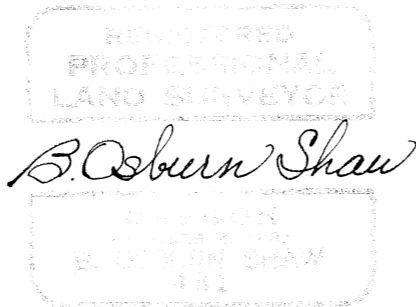 REGISTERED
PROFESSIONAL
LAND SURVEYOR
B. Osburn Shaw
OREGON
B. OSBURN SHAW